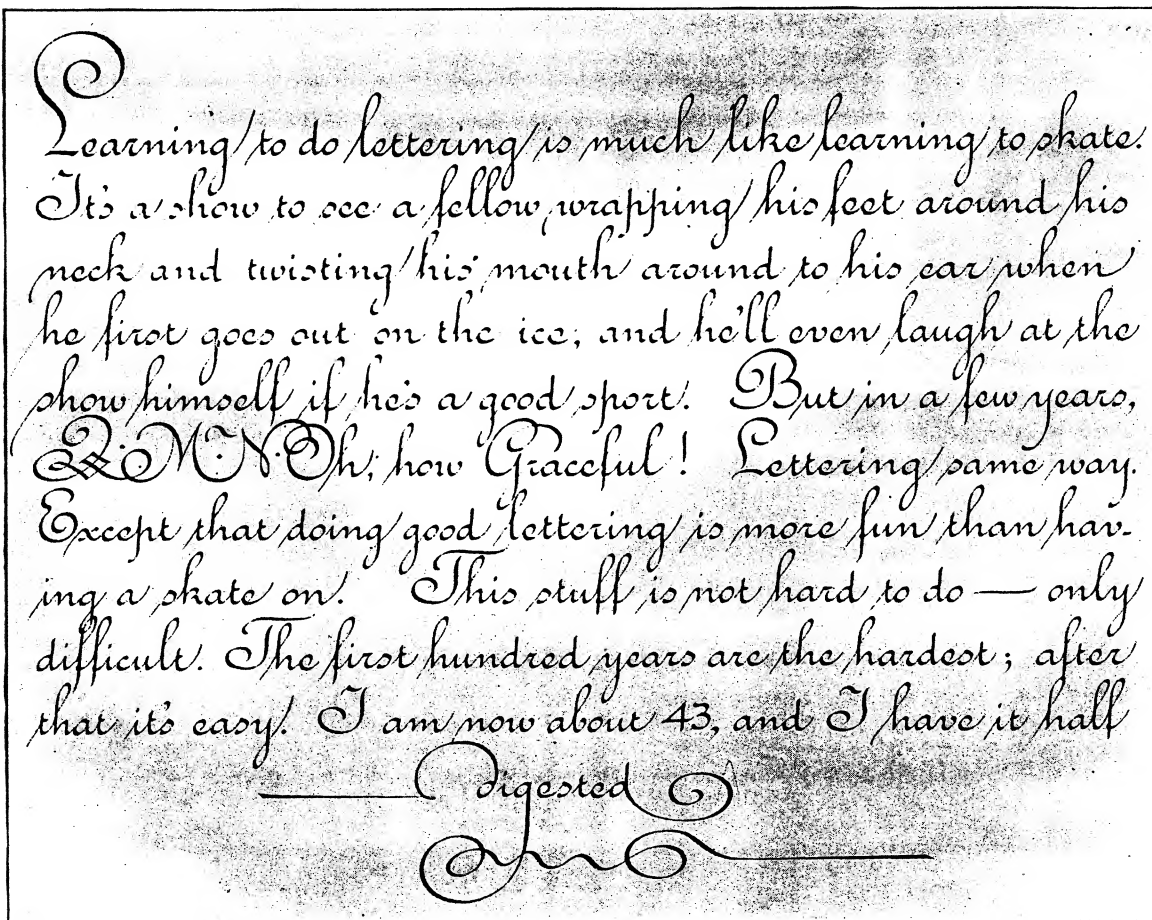 Learning to do lettering is much like learning to skate.
It's a show to see a fellow wrapping his feet around his
neck and twisting his mouth around to his ear when
he first goes out on the ice; and he'll even laugh at the
show himself if he's a good sport. But in a few years,
Q. M. N. Oh, how Graceful! Lettering same way.
Except that doing good lettering is more fun than hav-
ing a skate on. This stuff is not hard to do — only
difficult. The first hundred years are the hardest; after
that it's easy. I am now about 43, and I have it half
Digested